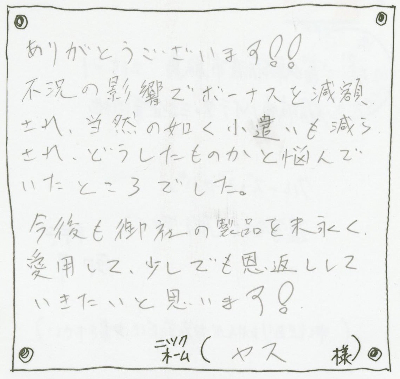 ありがとうございます!!
不況の影響でボーナスを減額
され、当然の如く小遣いも減ら
され、どうしたものかと悩んで
いたところでした。
今後も御社の製品を末永く
愛用して、少しでも恩返しして
いきたいと思います!
ニックネーム(ヤス 様)